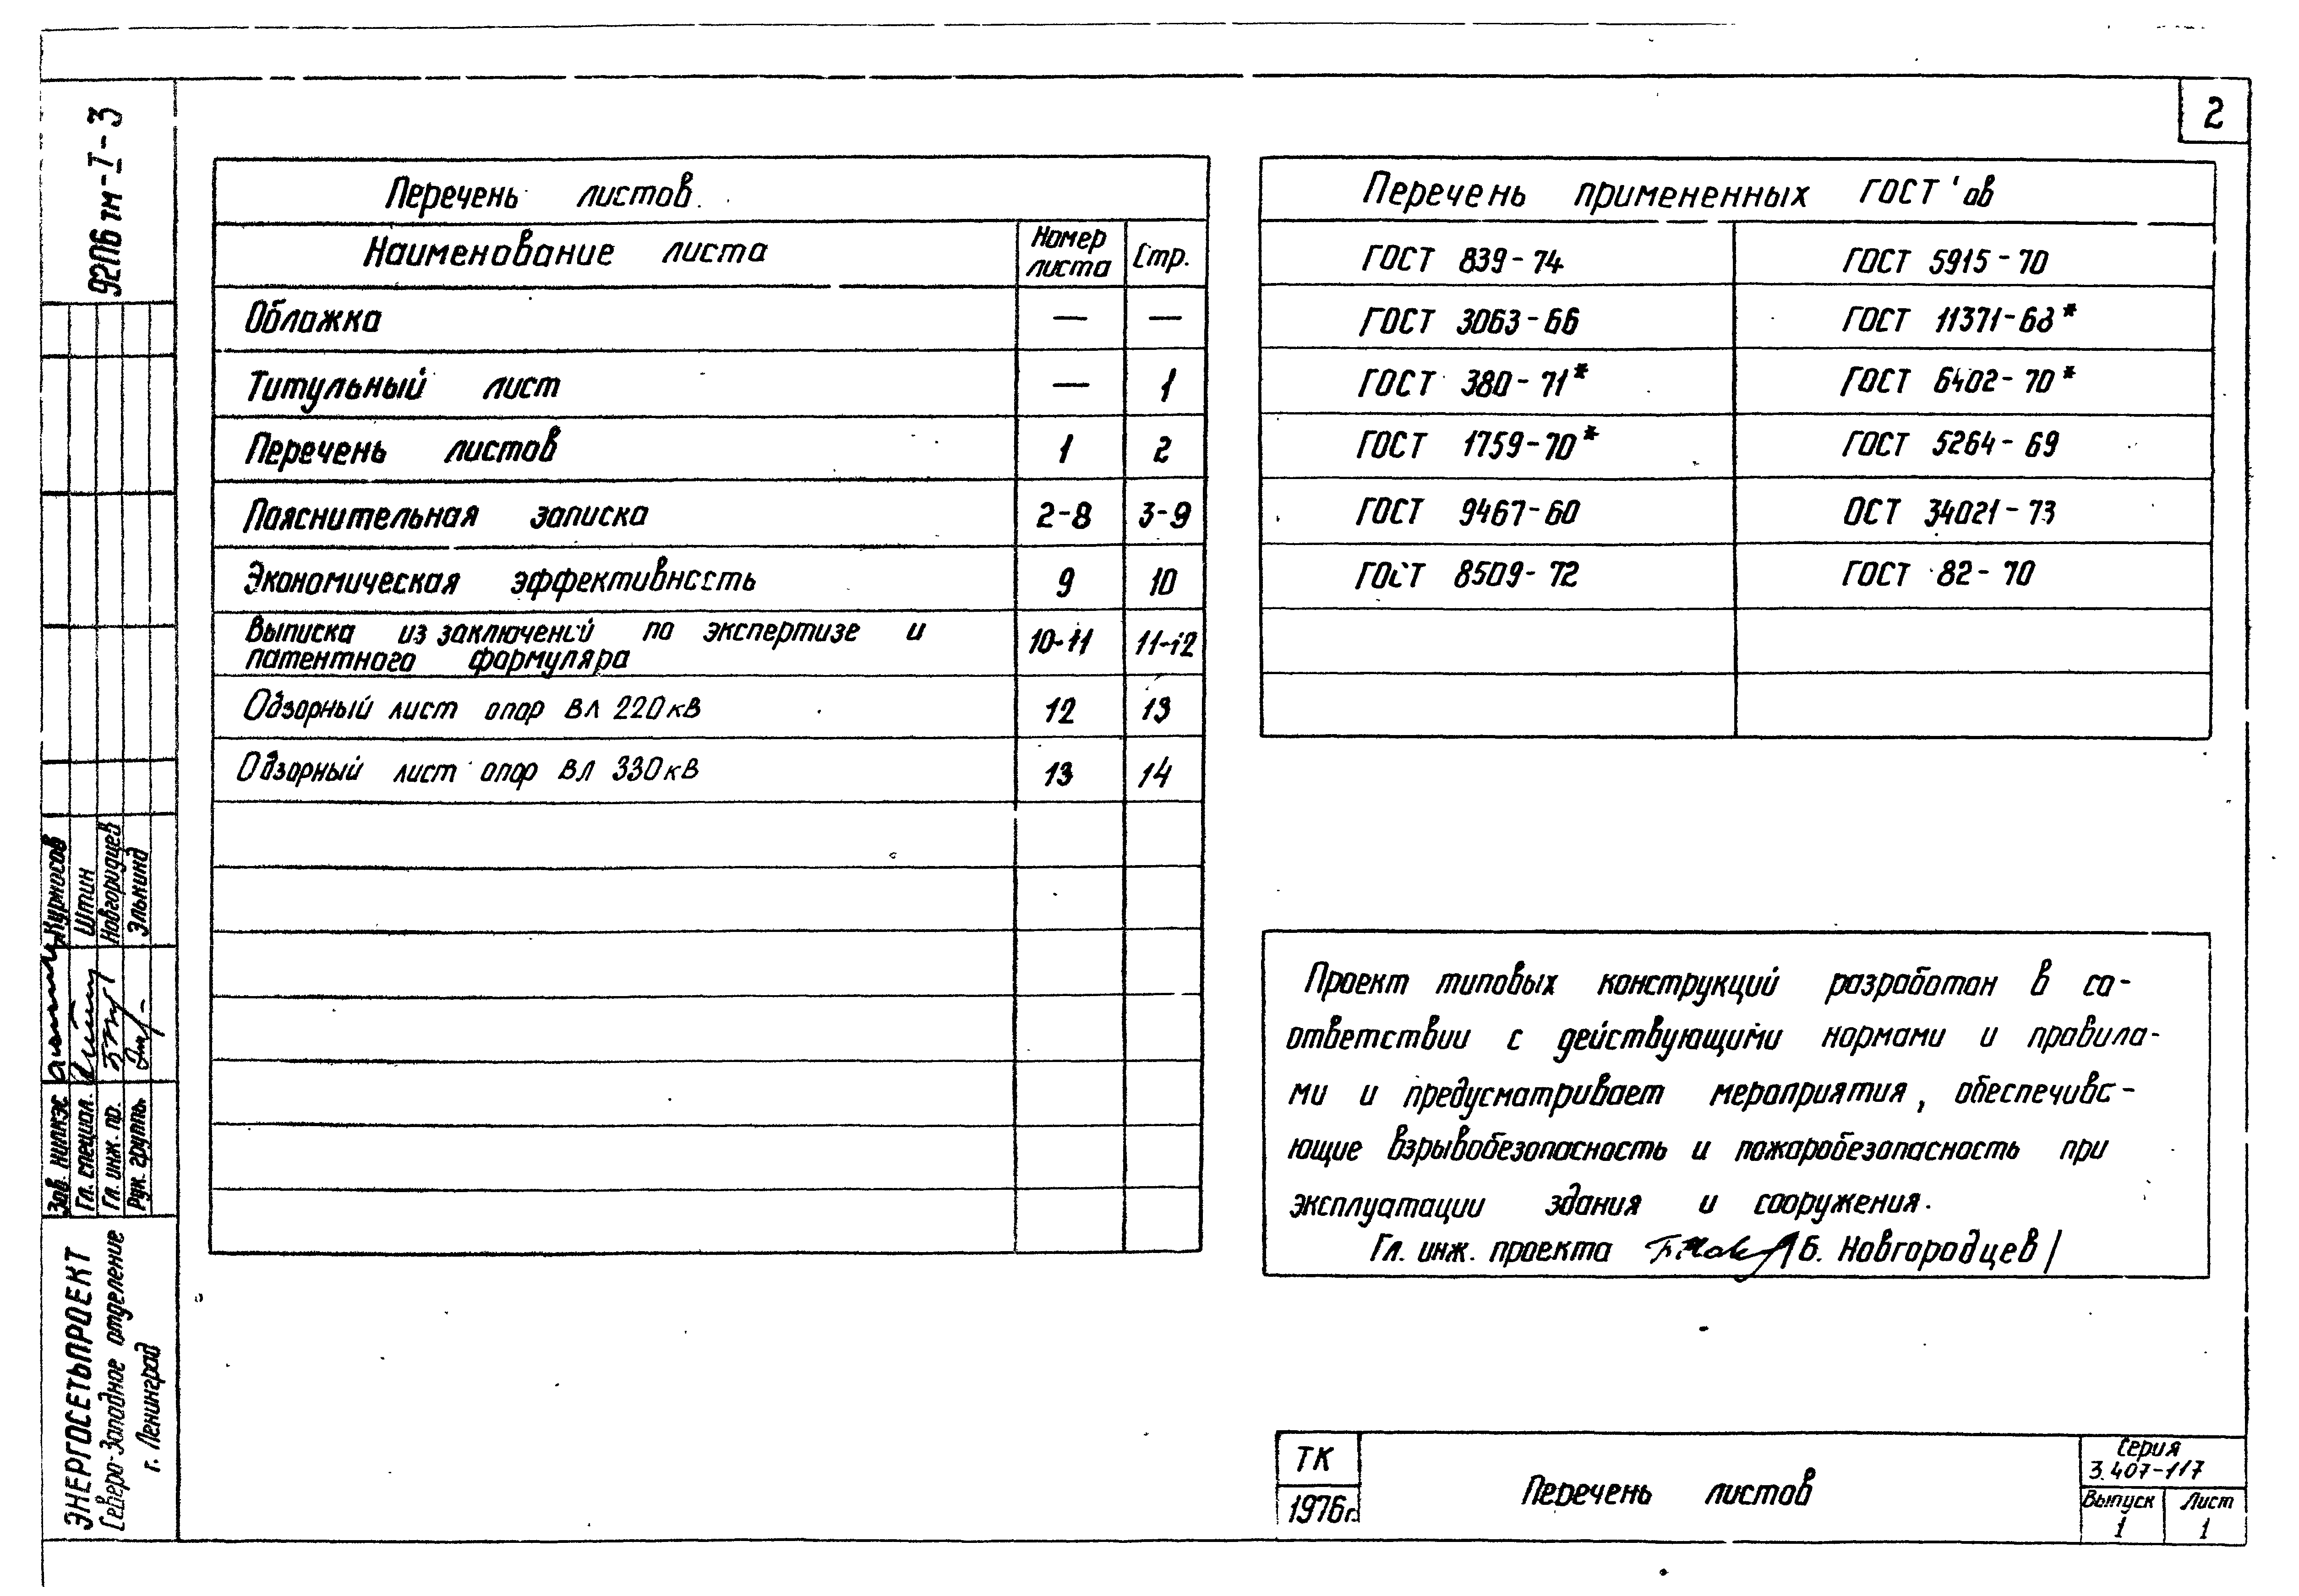 2
9206тм-I-3
Перечень листов.
Наименование листа
Номер листа
Стр.
Обложка — —
Титульный лист — 1
Перечень листов 1 2
Пояснительная записка 2-8 3-9
Экономическая эффективность 9 10
Выписка из заключений по экспертизе и
патентного формуляра 10-11 11-12
Обзорный лист опор ВЛ 220кВ 12 13
Обзорный лист опор ВЛ 330кВ 13 14
Перечень примененных ГОСТ'ов
ГОСТ 839-74 ГОСТ 5915-70
ГОСТ 3063-66 ГОСТ 11371-68*
ГОСТ 380-71* ГОСТ 6402-70*
ГОСТ 1759-70* ГОСТ 5264-69
ГОСТ 9467-60 ОСТ 34021-73
ГОСТ 8509-72 ГОСТ 82-70
Проект типовых конструкций разработан в со-
ответствии с действующими нормами и правила-
ми и предусматривает мероприятия, обеспечива-
ющие взрывобезопасность и пожаробезопасность при
эксплуатации здания и сооружения.
Гл. инж. проекта /Б. Новгородцев/
Зав. НИЛКЭС Курносов
Гл. специал. Штин
Гл. инж. пр. Новгородцев
Рук. группы Элькинд
ЭНЕРГОСЕТЬПРОЕКТ
Северо-Западное отделение
г. Ленинград
ТК
1976г.
Перечень листов
Серия
3.407-117
Выпуск
1
Лист
1